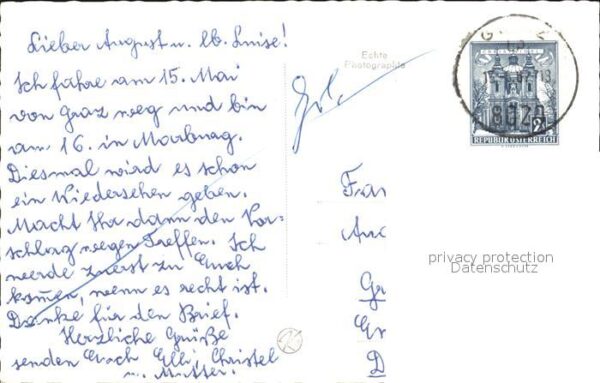 Lieber August u. lb. Luise!
Ich fahre am 15. Mai
von Graz weg und bin
am 16. in Marburg.
Diesmal wird es schon
ein Wiedersehen geben.
Macht Ihr dann den Vor=
schlag wegen Treffen. Ich
werde zuerst zu Euch
kom̄en, wenn es recht ist.
Danke für den Brief.
Herzliche Grüße
senden Euch Elli Christel
u. Mutter.
Echte
Photographie
8020
2
REPUBLIK ÖSTERREICH
privacy protection
Datenschutz